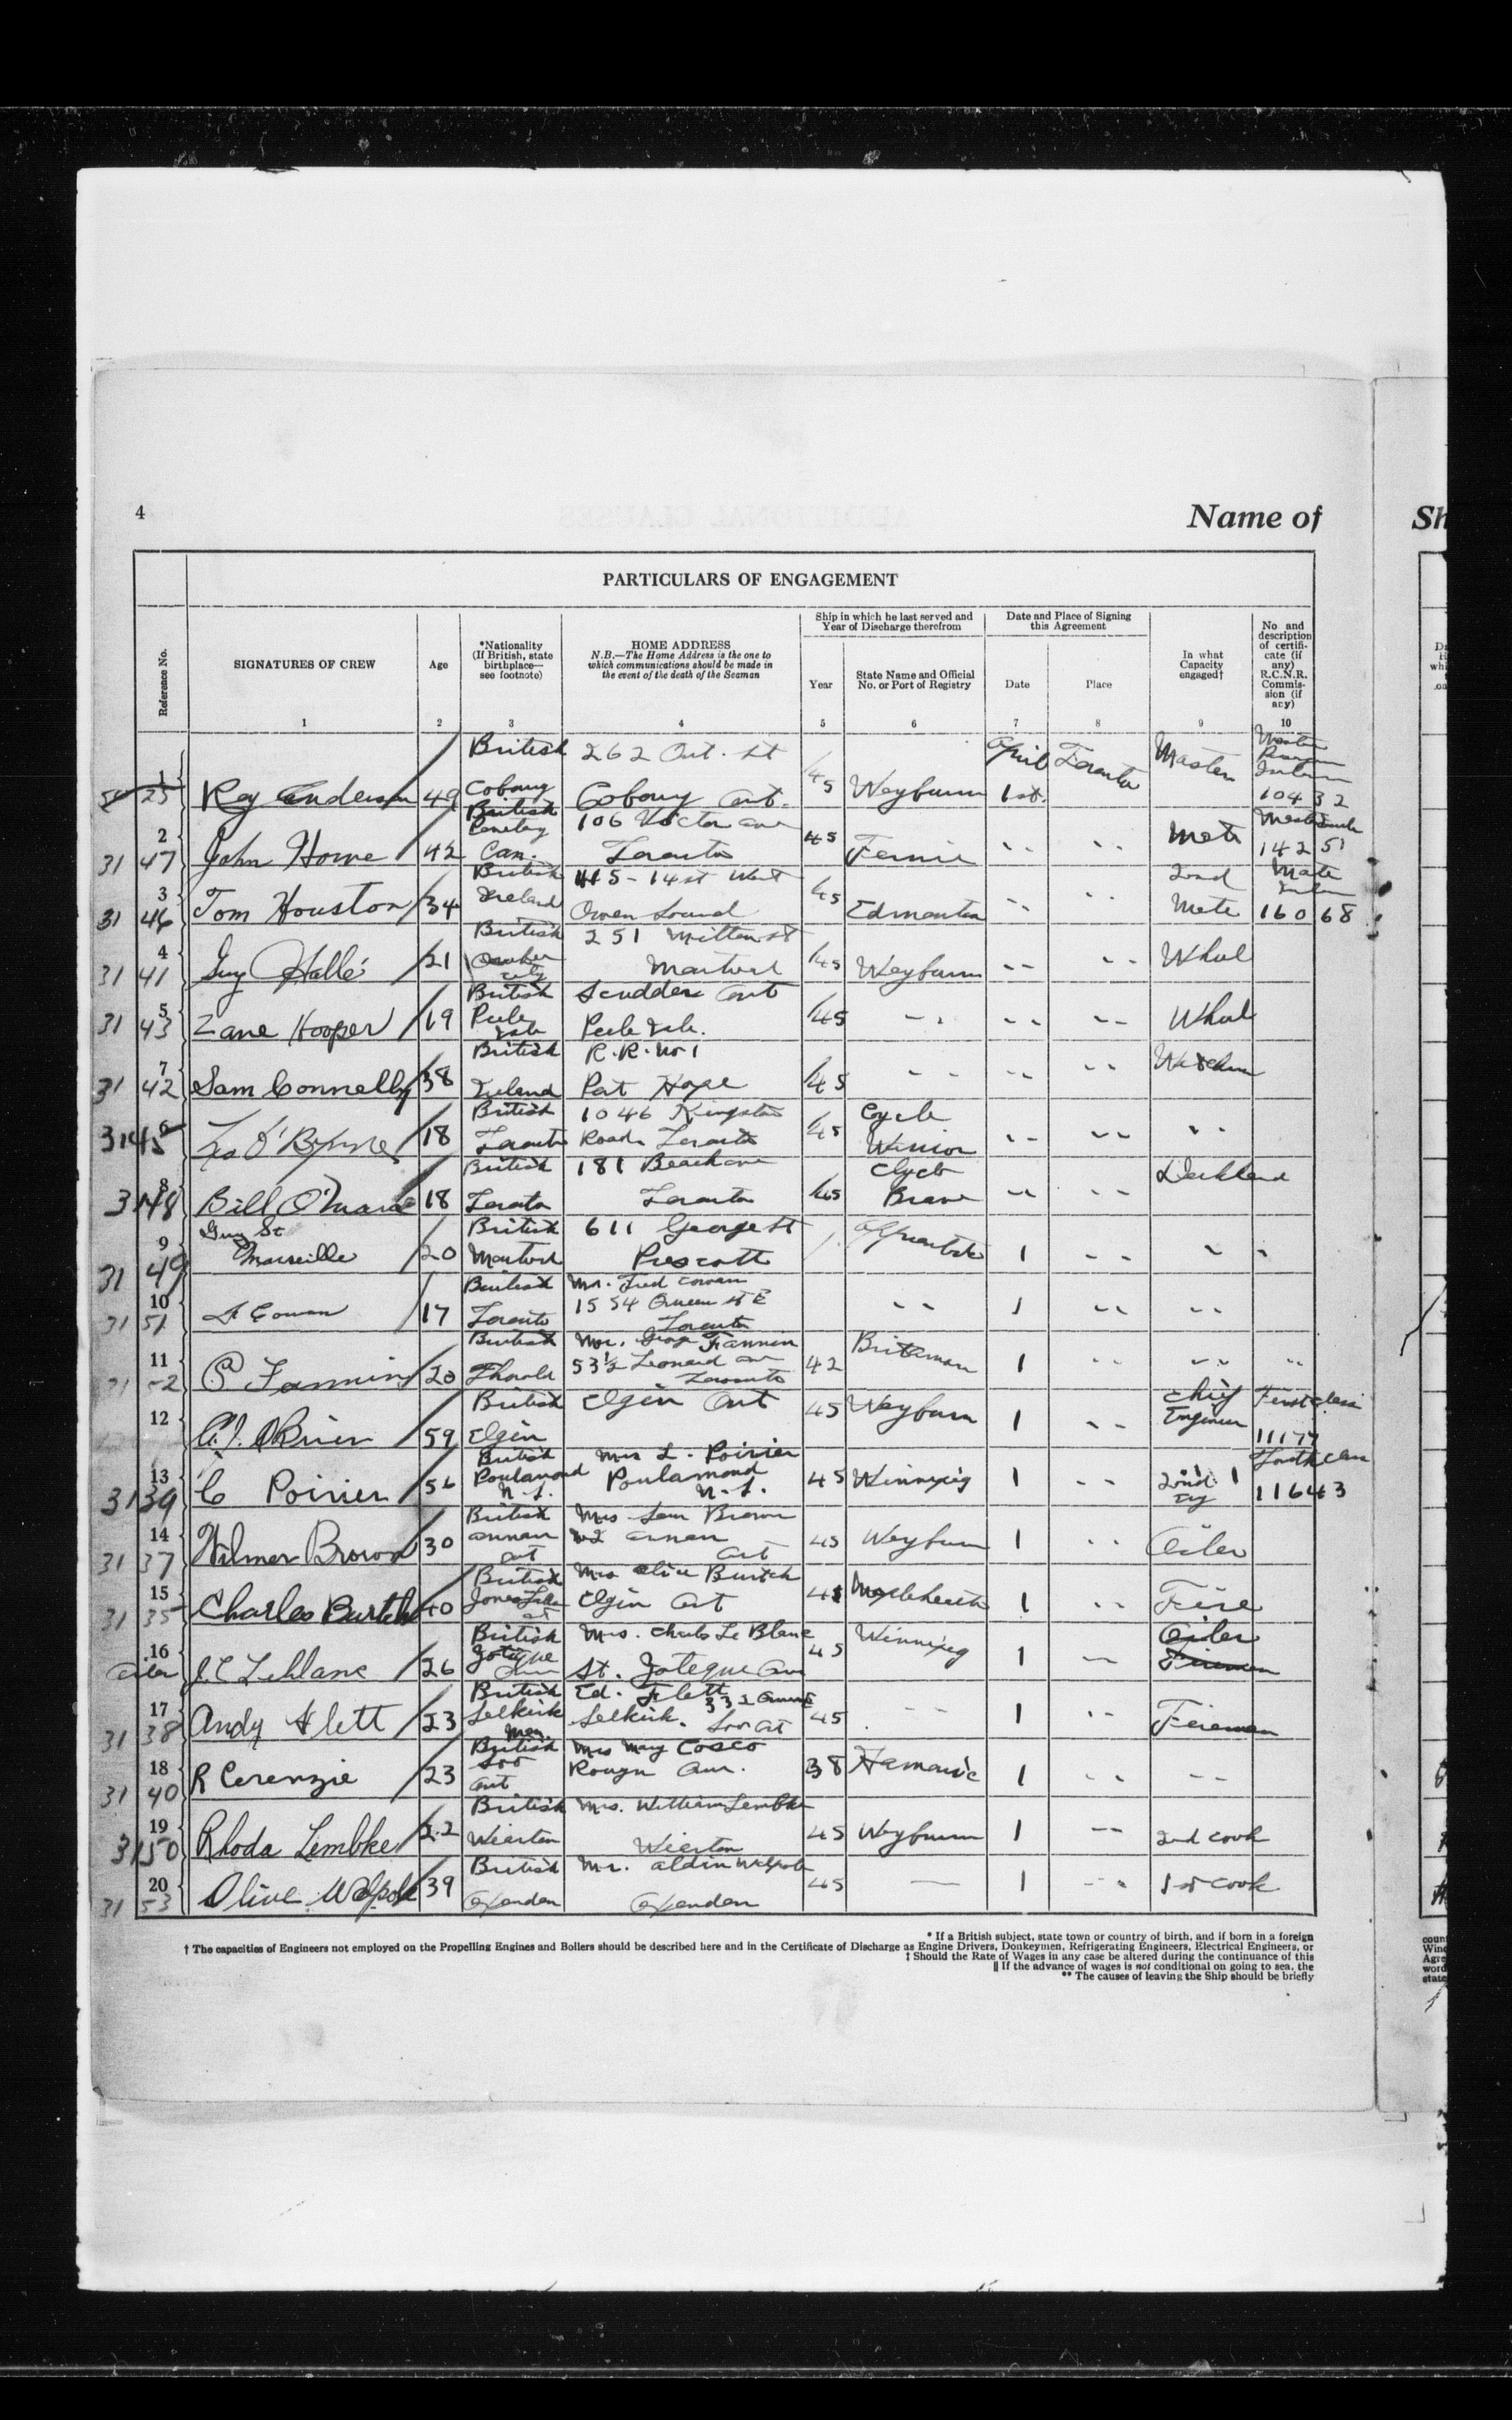 4
Name of
Sh
PARTICULARS OF ENGAGEMENT
Reference No.
SIGNATURES OF CREW
Age
*Nationality
(If British, state
birthplace—
see footnote)
HOME ADDRESS
N.B.—The Home Address is the one to
which communications should be made in
the event of the death of the Seaman
Ship in which he last served and
Year of Discharge therefrom
Year
State Name and Official
No. or Port of Registry
Date and Place of Signing
this Agreement
Date
Place
In what
Capacity
engaged†
No and
description
of certifi-
cate (if
any)
R.C.N.R.
Commis-
sion (if
any)
1 2 3 4 5 6 7 8 9 10
British 262 Ont. St April Toronto Master
1 25 Roy Anderson 49 Cobourg Cobourg Ont. 45 Weyburn 1st. 10432
British 106 Victor ave
2 31 47 John Howe 42 Can. Toronto 45 Fernie -- -- Mate 14251
British 415 - 14 st West 2nd Mate
3 31 46 Tom Houston 34 Ireland Owen Sound 45 Edmonton -- -- Mate 16068
British 251 st
4 31 41 Guy Hallé 21 city Montreal 45 Weyburn -- -- Whel
British Scudder Ont
5 31 43 Zane Hooper 19 Pelee Isle Pelee Isle. 45 -- -- -- Whel
British R.R. No 1
7 31 42 Sam Connelly 38 Ireland Port Hope 45 -- -- -- Watchm
British 1046 Kingston Coyle
6 31 45 O'Byrne 18 Toronto Road Toronto 45 -- -- --
British 181 Beach ave Deckhand
8 31 48 Bill O'Mara 18 Toronto Toronto 45 -- --
Guy St British 611 George st
9 31 49 Marseille 20 Montreal Prescott 1 -- --
British Mr. Fred Cowan
10 31 51 Cowan 17 Toronto 1554 Queen st E -- 1 -- --
Toronto
British Mr. Fannin
11 31 52 Fannin 20 Thorold 53½ Leonard ave 42 1 -- -- --
Toronto
British Elgin Ont Chief First class
12 O'Brien 59 Elgin 45 Weyburn 1 -- Engineer 11177
British Mrs L. Poirier
13 31 39 C Poirier 56 Poulamond Poulamond 45 Winnipeg 1 -- 2nd 11643
N.S. N.S.
British Mrs Sam Brown
14 31 37 Wilmer Brown 30 annan Ont annan Ont 45 Weyburn 1 -- Oiler
British Mrs
15 31 35 Charles 40 Jones Elgin Ont 1 -- Fire
British Mrs. Charles Le Blanc Oiler
16 oiler J.C. Leblanc 26 St. 45 Winnipeg 1 -- Fireman
British Ed. Flett
17 31 38 Andy Flett 23 Selkirk Man Selkirk. 45 -- 1 -- Fireman
British Mrs Mary Cosco
18 31 40 R Cerenzie 23 Soo Ont 38 Hamonic 1 -- --
British Mrs. William Lembke
19 31 50 Rhoda Lembke 22 Wiarton Wiarton 45 Weyburn 1 -- 2nd cook
British Mr.
20 31 53 Olive Walpole 39 Oxenden Oxenden 45 — 1 -- 1st cook
* If a British subject, state town or country of birth, and if born in a foreign
† The capacities of Engineers not employed on the Propelling Engines and Boilers should be described here and in the Certificate of Discharge as Engine Drivers, Donkeymen, Refrigerating Engineers, Electrical Engineers, or
‡ Should the Rate of Wages in any case be altered during the continuance of this
‖ If the advance of wages is not conditional on going to sea, the
** The causes of leaving the Ship should be briefly